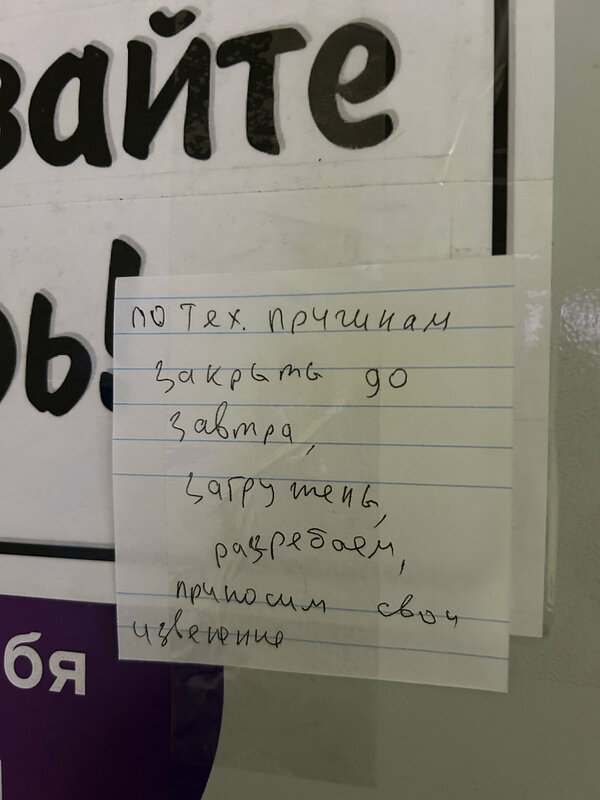 вайте
рь!
по тех. причинам
закрыты до
завтра,
загружены,
разребаем,
приносим свои
извенение
бя